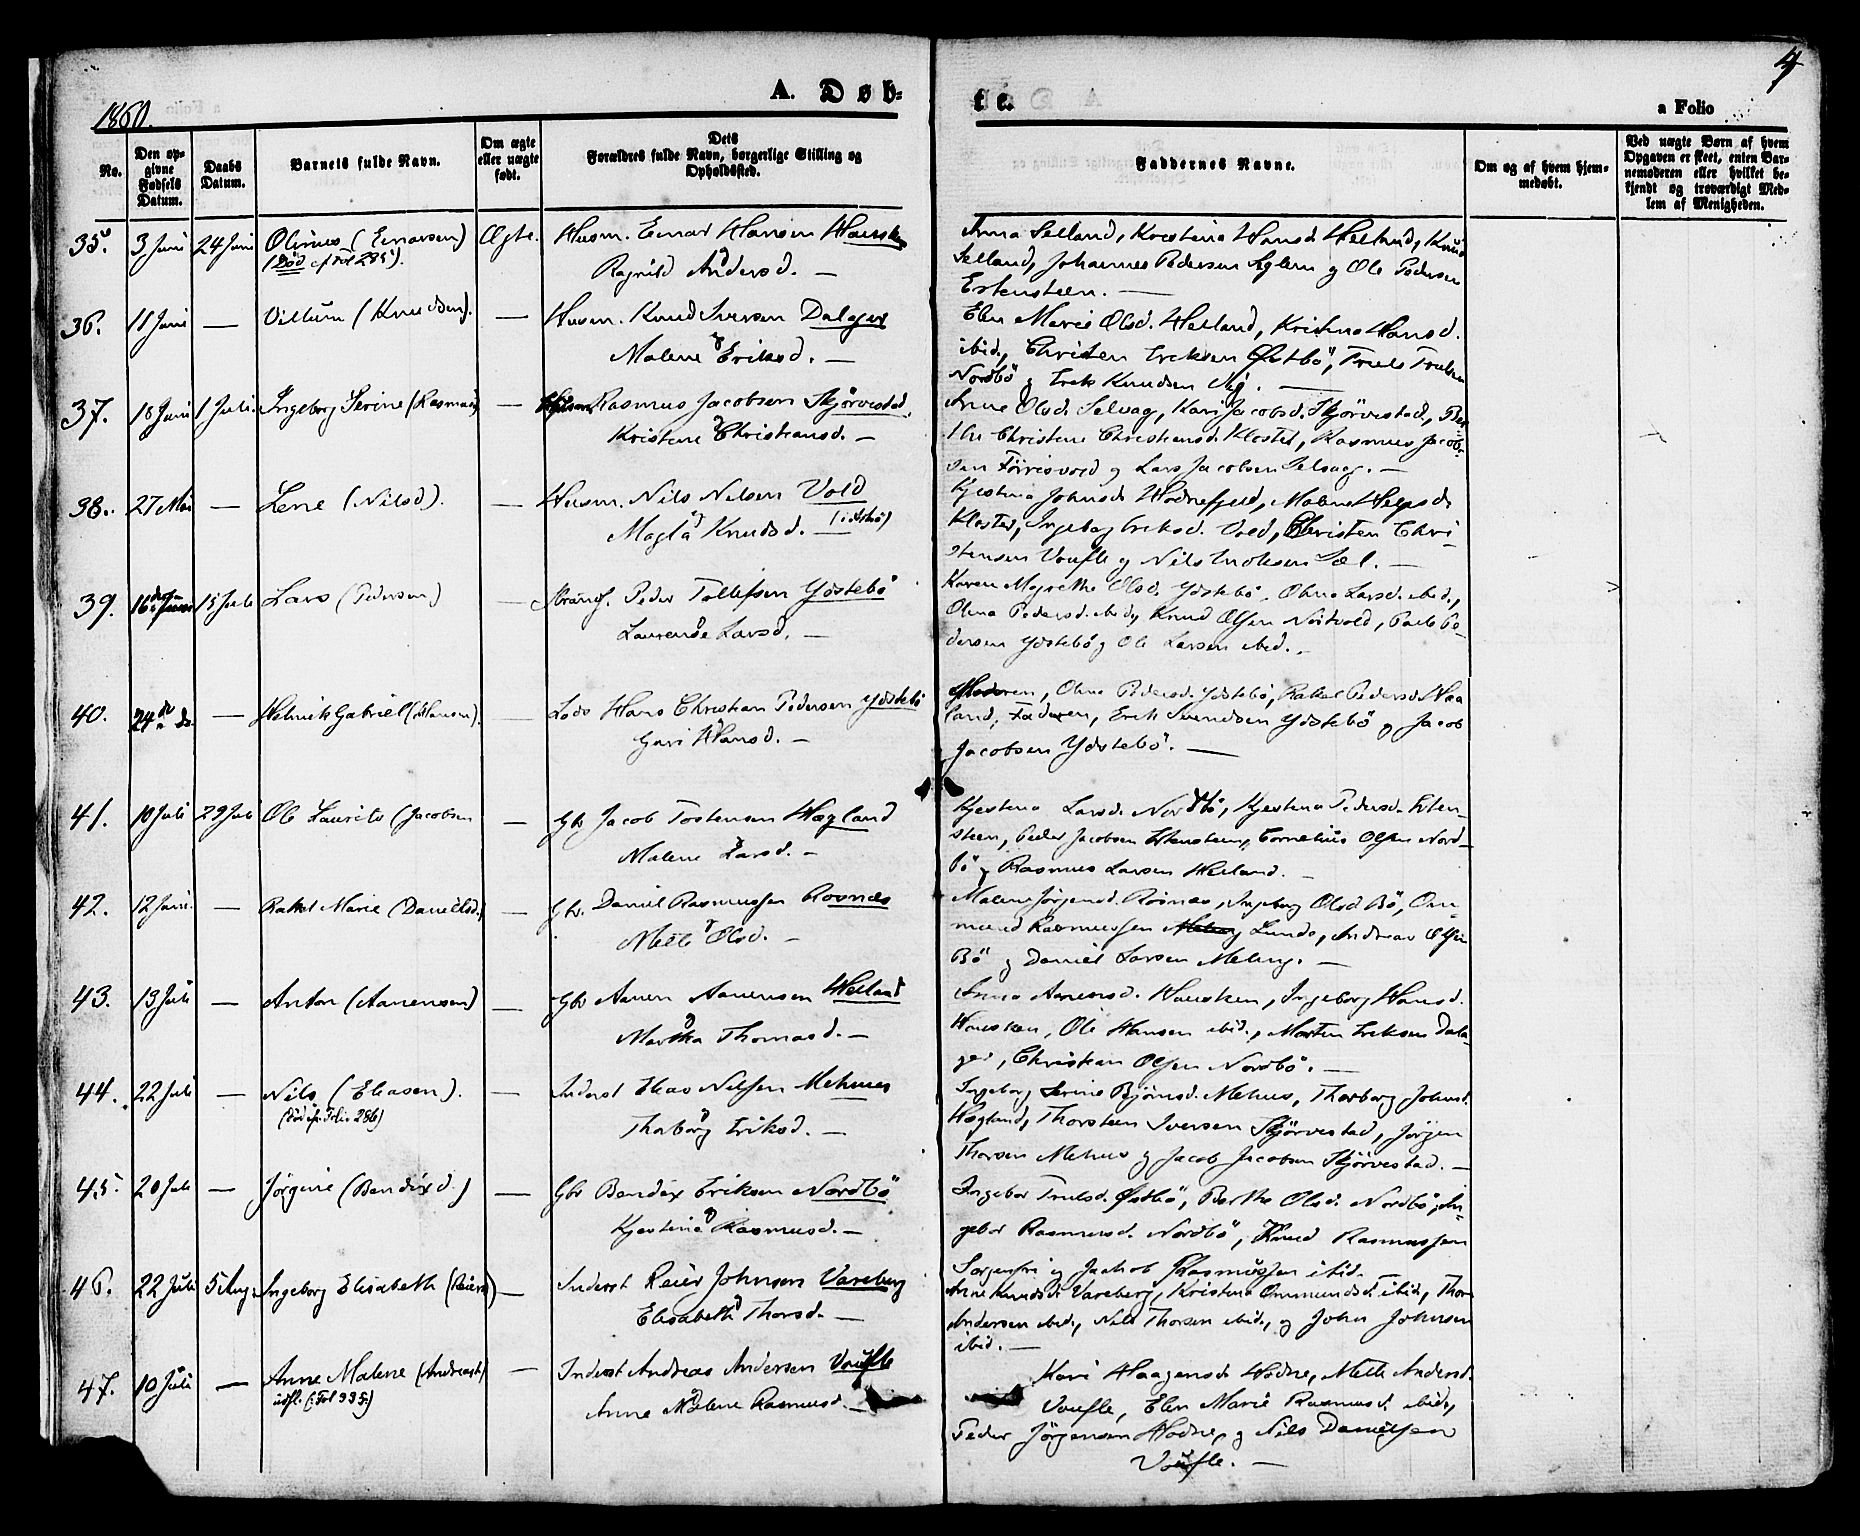 4
1860.
A. Døb-
te.
a Folio
No.
Den opgivne Fødsels Datum.
Daabs Datum.
Barnets fulde Navn.
Om ægte eller uægte født.
Dets Forældres fulde Navn, borgerlige Stilling og Opholdssted.
Faddernes Navne.
Om og af hvem hjemmedøbt.
Ved uægte Børn af hvem Opgaven er skeet, enten Barnemoderen eller hvilket bekjendt og troværdigt Medlem af Menigheden.
35. 3 Juni 24 Juni Olinus (Einarsen) Ægte. Husm. Einar Hansen Hausken
(Død cf Fol 285).
Ragnild Andersd. —
Anna Selland, Kristina Hansd. Helland, Knud
Selland, Johannes Pedersen og Ole Pedersen
Extensteen. —
36. 11 Juni — Villum (Knudsen). — Husm. Knud Iversen Dalager
Malene Eriksd. —
Elen Marie Olsd. Helland, Kristina Hansd.
ibid., Christen Eriksen Østbö, Truls Trulsen
Nordbö og Erik Knudsen
37. 18 Juni 1 Juli. Ingeborg Serine (Rasmusd) — Husm Rasmus Jacobsen Skjörvestad.
Kristene Christiansd. —
Anne Olsd. Selvag, Kari Jacobsd. Skjörvestad, Ber-
the Christine Christiansd. Kloster, Rasmus Jacob-
sen Förrisvold og Lars Jacobsen Selvaag. —
38. 27 Mai — Lene (Nilsd). — Husm. Nils Nilsen Vold
Magla Knudsd. —
Kjestina Johnsd. Hodnefjeld, Malene Helgesd.
Kloster, Ingeborg Eriksd. Vold, Christen Chri-
stensen Voufle og Nils Sæl. —
39. 16 Juni 15 Juli Lars (Pedersen) — Strandf. Peder Tollefsen Ydstebö
Laurense Larsd. —
Karen Magrethe Olsd. Ydstebö, Olena Larsd. ibid.,
Olina Pedersd. ibid, Knud Olsen Nordvold, Paul Pe-
dersen Ydstebö og Ole Larsen ibid. —
40. 24 do — Helmik Gabriel (Hansen). — Lods Hans Christian Pedersen Ydstebö
Guri Hansd. —
Moderen, Olina Pedersd. Ydstebö, Rakel Pedersd. Haa-
land, Faderen, Erik Svendsen Ydstebö og Jacob
Jacobsen Ydstebö. —
41. 10 Juli 29 Juli Ole Laurits (Jacobsen — Gbr Jacob Tostensen Hægland
Malene Larsd. —
Kjestina Larsd. Nordbö, Kjestina Pedersd. Exten-
steen, Peder Jacobsen Extensteen, Cornelius Olsen Nord-
bö og Rasmus Larsen Helland. —
42. 12 Juni. — Rakel Marie (Danielsd.) — Gbr. Daniel Rasmussen Rosnæs
Mette Olsd. —
Malene Jörgensd. Rosnæs, Ingeborg Olsd. Bö, Om-
mund Rasmussen Lunde, Andreas Olsen
Bö og Daniel Larsen Meling. —
43. 13 Juli — Anton (Aanensen) — Gbr Aanen Aanensen Helland
Martha Thomasd. —
Anna Aanensd. Hausken, Ingeborg Hansd.
Hausken, Ole Hansen ibid., Morten Eriksen Dala-
ger, Christian Olsen Nordbö. —
44. 22 Juli — Nils (Eliasen). — Inderst Elias Nilssen Mehus
(Död cfr. Folio 286)
Thorborg Eriksd. —
Ingeborg Serine Björnsd. Mehus, Thorborg Johnsd.
Hægland, Thorsteen Iversen Skjörvestad, Jörgen
Thorsen Mehus og Jacob Jacobsen Skjörvestad. —
45. 20 Juli — Jörgine (Bendixd.) — Gbr Bendix Eriksen Nordbö
Kjestina Rasmusd. —
Ingebor Trulsd. Østbö, Berthe Olsd. Nordbö, In-
gebor Rasmusd. Nordbö, Knud Rasmussen
Sorgenfri og Jacob Rasmussen ibid.
46. 22 Juli 5 Aug. Ingeborg Elisabeth (Reiersd) — Inderst Reier Johnsen Vareberg
Elisabeth Thorsd. —
Anne Knudsd. Vareberg, Kristine Ommundsd. ibid, Thor
Andersen ibid., Nils Thorsen ibid., og John Johnsen
ibid. —
47. 10 Juli — Anne Malene (Andreasd) — Inderst Andreas Andersen Voufle
udfl. (Fol 335.)
Anne Malene Rasmusd. —
Kari Haagensd. Hodne, Mette Andersd.
Voufle, Elen Marie Rasmusd. ibid.,
Peder Jörgensen Hodne, og Nils Danielsen
Voufle. —